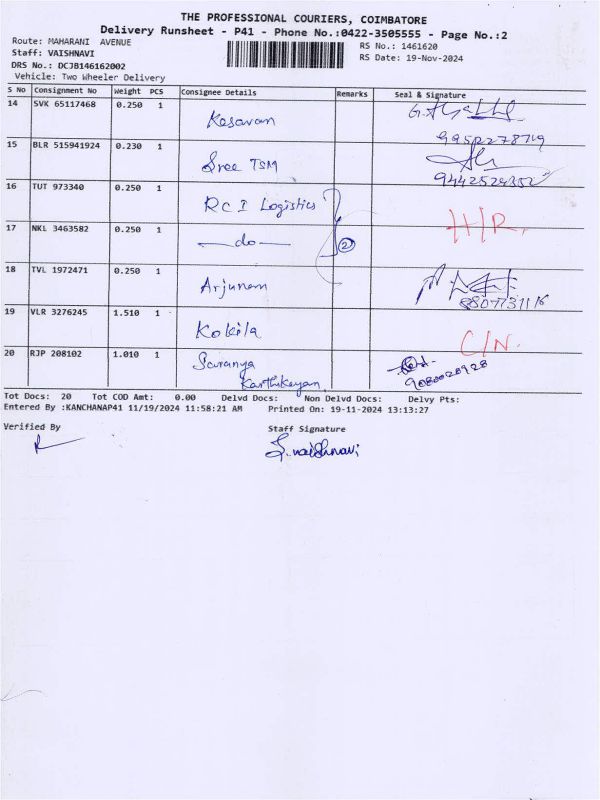 THE PROFESSIONAL COURIERS, COIMBATORE
Delivery Runsheet - P41 - Phone No.:0422-3505555 - Page No.:2
Route: MAHARANI AVENUE
RS No.: 1461620
Staff: VAISHNAVI
RS Date: 19-Nov-2024
DRS No.: DCJB146162002
Vehicle: Two Wheeler Delivery
S No Consignment No Weight PCS Consignee Details Remarks Seal & Signature
14 SVK 65117468 0.250 1 Kesavan
15 BLR 515941924 0.230 1 Sree TSM
9442524352
16 TUT 973340 0.250 1 RCI Logistics H/R.
17 NKL 3463582 0.250 1 —do— 2
18 TVL 1972471 0.250 1 Arjunan
8807731116
19 VLR 3276245 1.510 1 Kokila C/N.
20 RJP 208102 1.010 1 Saranya
Karthikeyan 9080020928
Tot Docs: 20 Tot COD Amt: 0.00 Delvd Docs: Non Delvd Docs: Delvy Pts:
Entered By :KANCHANAP41 11/19/2024 11:58:21 AM Printed On: 19-11-2024 13:13:27
Verified By Staff Signature
S.vaishnavi